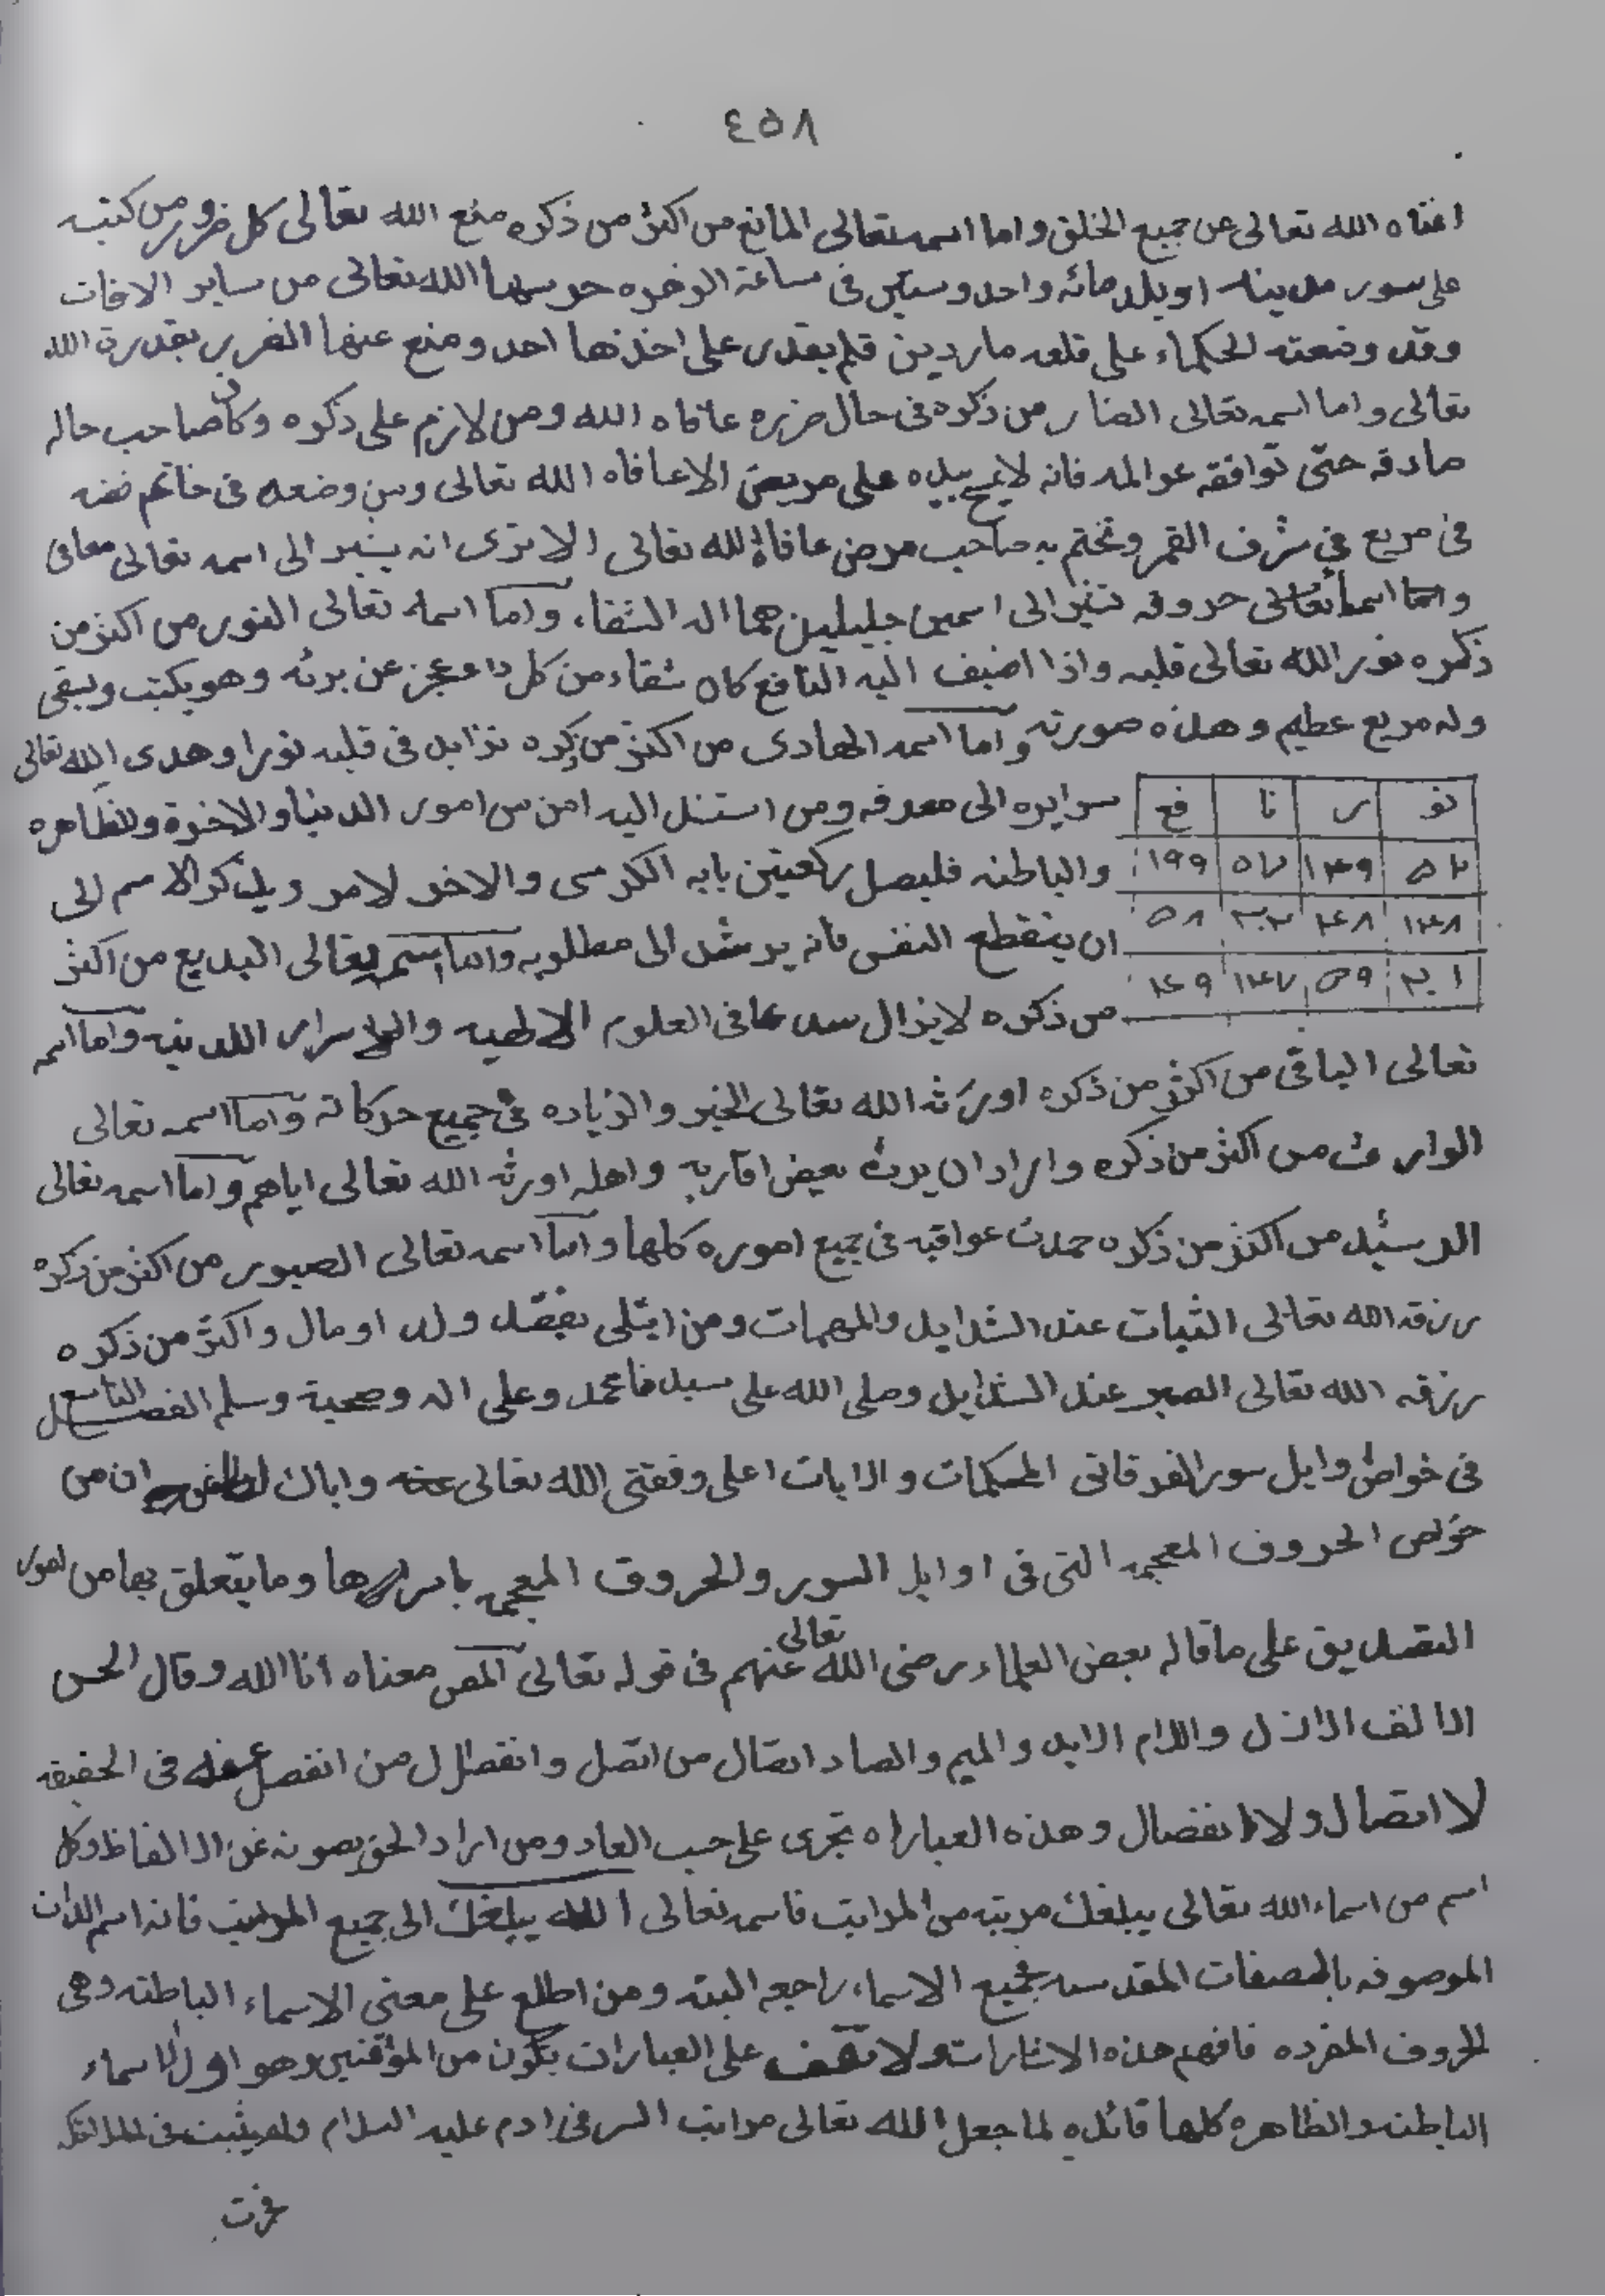 ٤٥٨
اغناه الله تعالى عن جميع الخلق واما اسمه تعالى المانع من اكثر من ذكره منع الله تعالى كل ضرور من كتبه
على سور مدينه او بلد مائه واحد وستين فى ساعة الزهره حرسها الله تعالى من ساير الافات
وقد وضعته الحكماء على قلعه ماردين فلم يقدر على اخذها احد ومنع عنها الضرر بقدرة الله
تعالى واما اسمه تعالى الضار من ذكره فى حال ضرره عافاه الله ومن لازم على ذكره وكان صاحب حاله
صادقه حتى توافقه عوالمه فانه لايمسح بيده على مريض الاعافاه الله تعالى ومن وضعه فى خاتم فضه
فى مربع فى شرف القمر وتختم به صاحب مرض عافاه الله تعالى الا ترى انه يشير الى اسمه تعالى معافى
واما اسمه تعالى حروفه تشير الى اسمين جليلين هما اله الشفاء واما اسمه تعالى النور من اكثر من
ذكره نور الله تعالى قلبه واذا اضيف اليه النافع كان شفاء من كل داء عجز عن برئه وهو يكتب ويسقى
وله مربع عظيم وهذه صورته واما اسمه الهادى من اكثر من ذكره تزايد فى قلبه نورا وهدى الله تعالى
سرايره الى معرفه ومن استند اليه امن من امور الدنيا والاخرة والظاهره
والباطنه فليصل ركعتين بايه الكرسى والاخر لامر ويذكر الاسم الى
ان ينقطع النفس فانه يرشد الى مطلوبه واما اسمه تعالى البديع من اكثر
من ذكره لايزال مبدعا فى العلوم الالهيه والاسرار اللدنيه واما اسمه
نو ر نا فع
٥٢ ١٤٩ ٥٧ ١٩٩
١٤٨ ٤٨ ٢٠٢ ٥٨
٢٠١ ٥٩ ١٤٧ ٤٩
تعالى الباقى من اكثر من ذكره اورثه الله تعالى الخير والزياده فى جميع حركاته واما اسمه تعالى
الوارث من اكثر من ذكره واراد ان يرث بعض اقاربه واهله اورثه الله تعالى اياهم واما اسمه تعالى
الرشيد من اكثر من ذكره حمدت عواقبه فى جميع اموره كلها واما اسمه تعالى الصبور من اكثر من ذكره
رزقه الله تعالى الثبات عند الشدايد والمهمات ومن ابتلى بفقد ولد او مال واكثر من ذكره
رزقه الله تعالى الصبر عند الشدايد وصلى الله على سيدنا محمد وعلى اله وصحبة وسلم الفصل التاسع
فى خواص اوايل سور الفرقانى المحكمات والايات اعلم وفقنى الله تعالى واياك ان من
خواص الحروف المعجمه التى فى اوايل السور والحروف المعجمه باسرارها وما يتعلق بها من امور
التصديق على ما قاله بعض العلماء رضى الله تعالى عنهم فى قوله تعالى المص معناه انا الله وقال الحسن
الالف الازل واللام الابد والميم والصاد اتصال من اتصل وانفصال من انفصل فى الحقيقه
لا اتصال ولا انفصال وهذه العباراه تجرى على حسب العاد ومن اراد الحق يصونه عن الالفاظ وكل
اسم من اسماء الله تعالى يبلغك مرتبه من المراتب فاسمه تعالى الله يبلغك الى جميع المراتب فانه اسم الذات
الموصوفه بالصفات المقدسه فجميع الاسماء راجعه اليته ومن اطلع على معنى الاسماء الباطنه وهى
الحروف المفرده فافهم هذه الاشارات ولا تقف على العبارات يكون من المؤقنين وهو اول الاسماء
الباطنه والظاهره كلها قائله لما جعل الله تعالى مراتب السر فى ادم عليه السلام ولم يثبت فى الملائكه